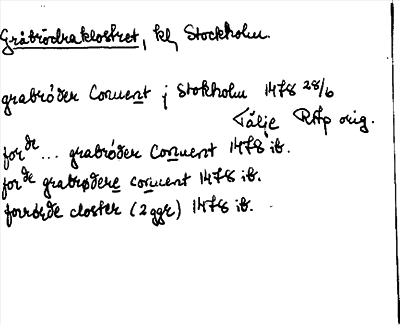 Gråbrödraklostret, kl, Stockholm.
grabrøder Conuent j Stokholm 1478 28/6
Tälje RAp orig.
for de ... grabrøder Conuent 1478 ib.
for de grabrødere conuent 1478 ib.
forrørde closter (2 ggr) 1478 ib.